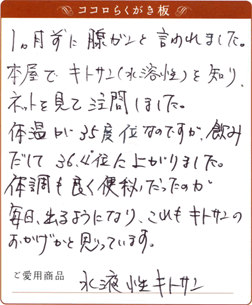 ココロらくがき板
1ヵ月前に膵ガンと言われました。
本屋でキトサン(水溶性)を知り、
ネットを見て注問しました。
体温が35度位なのですが、飲み
だして36.4位に上がりました。
体調も良く便秘だったのが
毎日、出るようになり、これもキトサンの
おかげかと思っています。
ご愛用商品
水液性キトサン